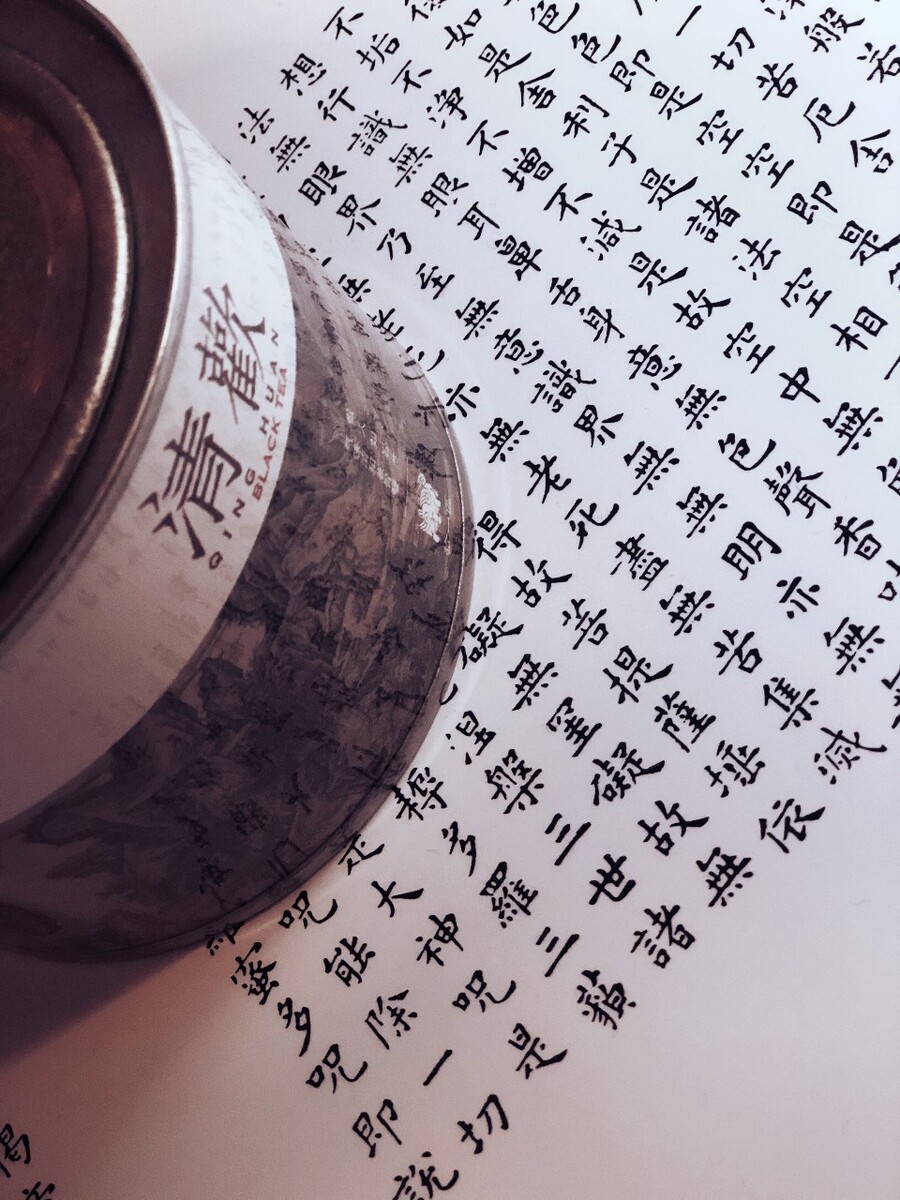 清歡
QING HUAN
BLACK TEA
深般若
一切苦厄舍
色色即是空空即是
如是舍利子是諸法空相
不垢不淨不增不減是故空中無色
想行識無眼耳鼻舌身意無色聲香味
法無眼界乃至無意識界無無明亦無無
亦無老死盡無苦集滅
得故菩提薩埵依
礙無罣礙故無
涅槃三世諸
耨多羅三藐
是大神咒是
咒能除一切
蜜多咒即說